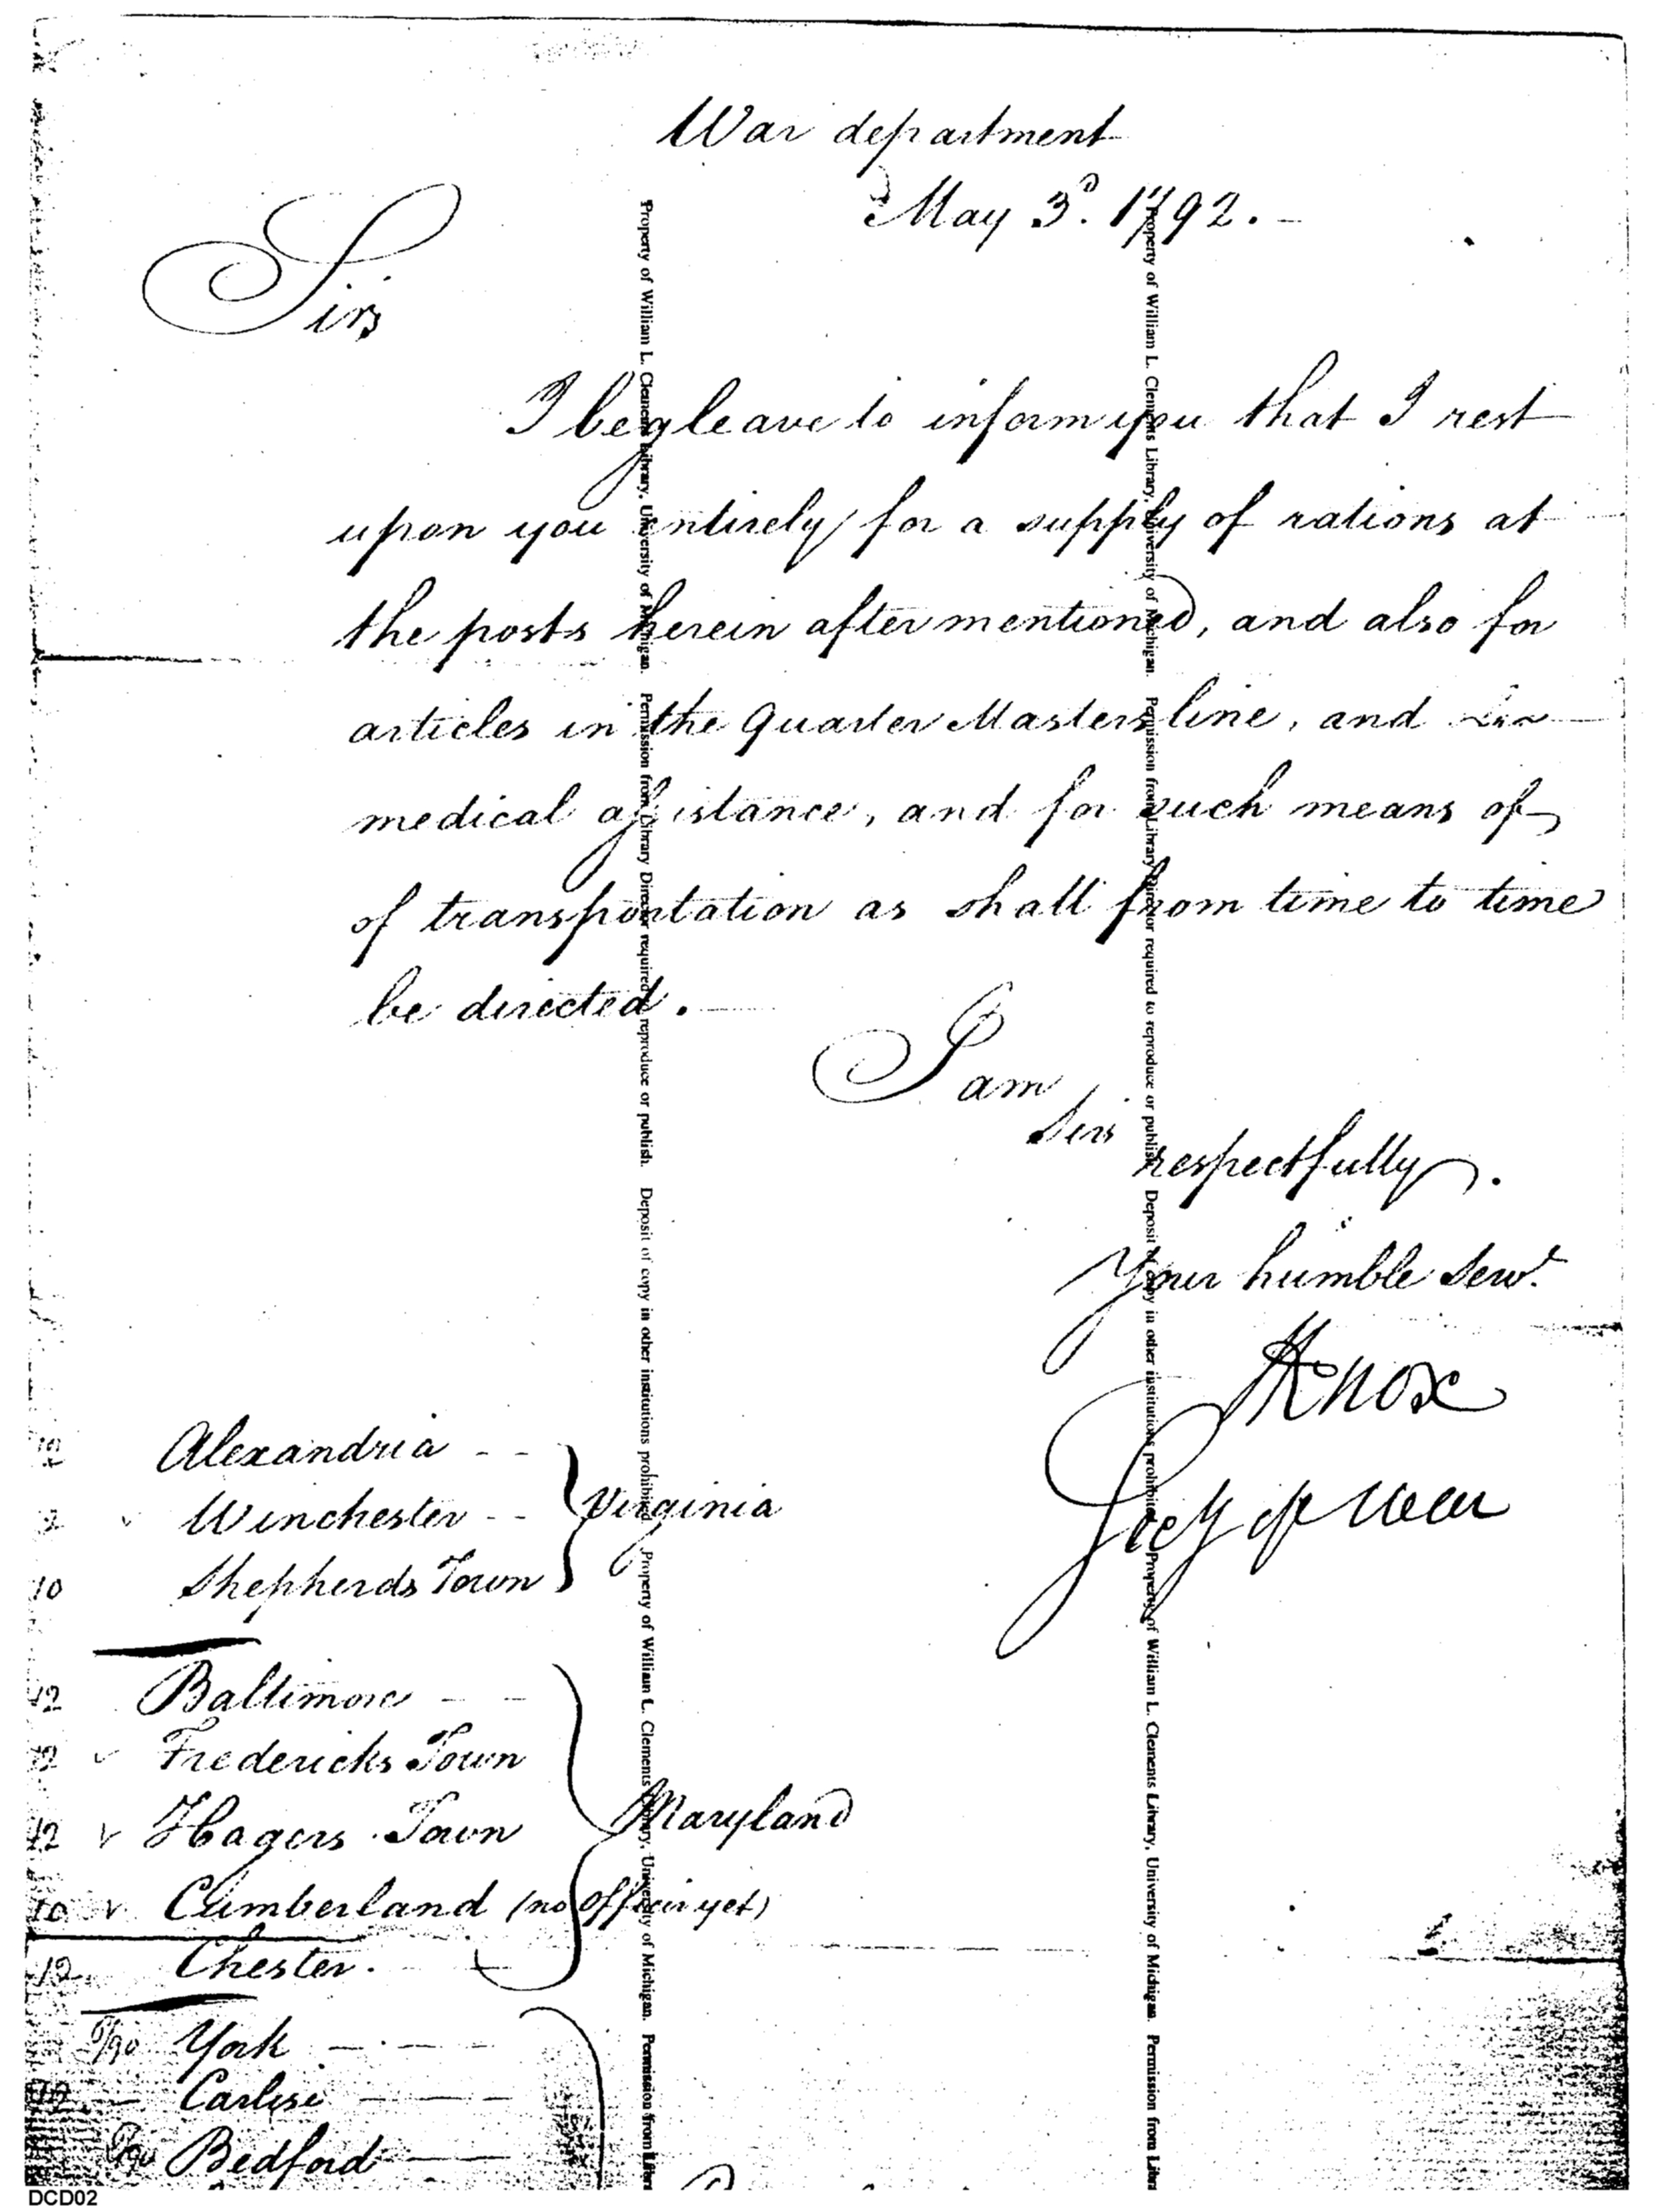 War department
May 3d. 1792. -
Sirs
I beg leave to inform you that I rest
upon you entirely for a supply of rations at
the posts herein after mentioned, and also for
articles in the Quarter Masters line, and
medical assistance, and for such means of
of transportation as shall from time to time
be directed. -
I am
Sirs
respectfully.
Your humble Servt.
HKnox
Secy of War
Alexandria - -
Winchester - -
10 Shepherds Town
Virginia
12 Baltimore - -
12 v Fredericks Town
12 v Hagers Town
10 v Cumberland (no officer yet)
12 Chester.
Maryland
York - - -
Carlise - - -
Bedford -
Property of William L. Clements Library, University of Michigan. Permission from Library Director required to reproduce or publish. Deposit of copy in other institutions prohibited. Property of William L. Clements Library, University of Michigan. Permission from Libra
Property of William L. Clements Library, University of Michigan. Permission from Library Director required to reproduce or publish. Deposit of copy in other institutions prohibited. Property of William L. Clements Library, University of Michigan. Permission from Libra
DCD02